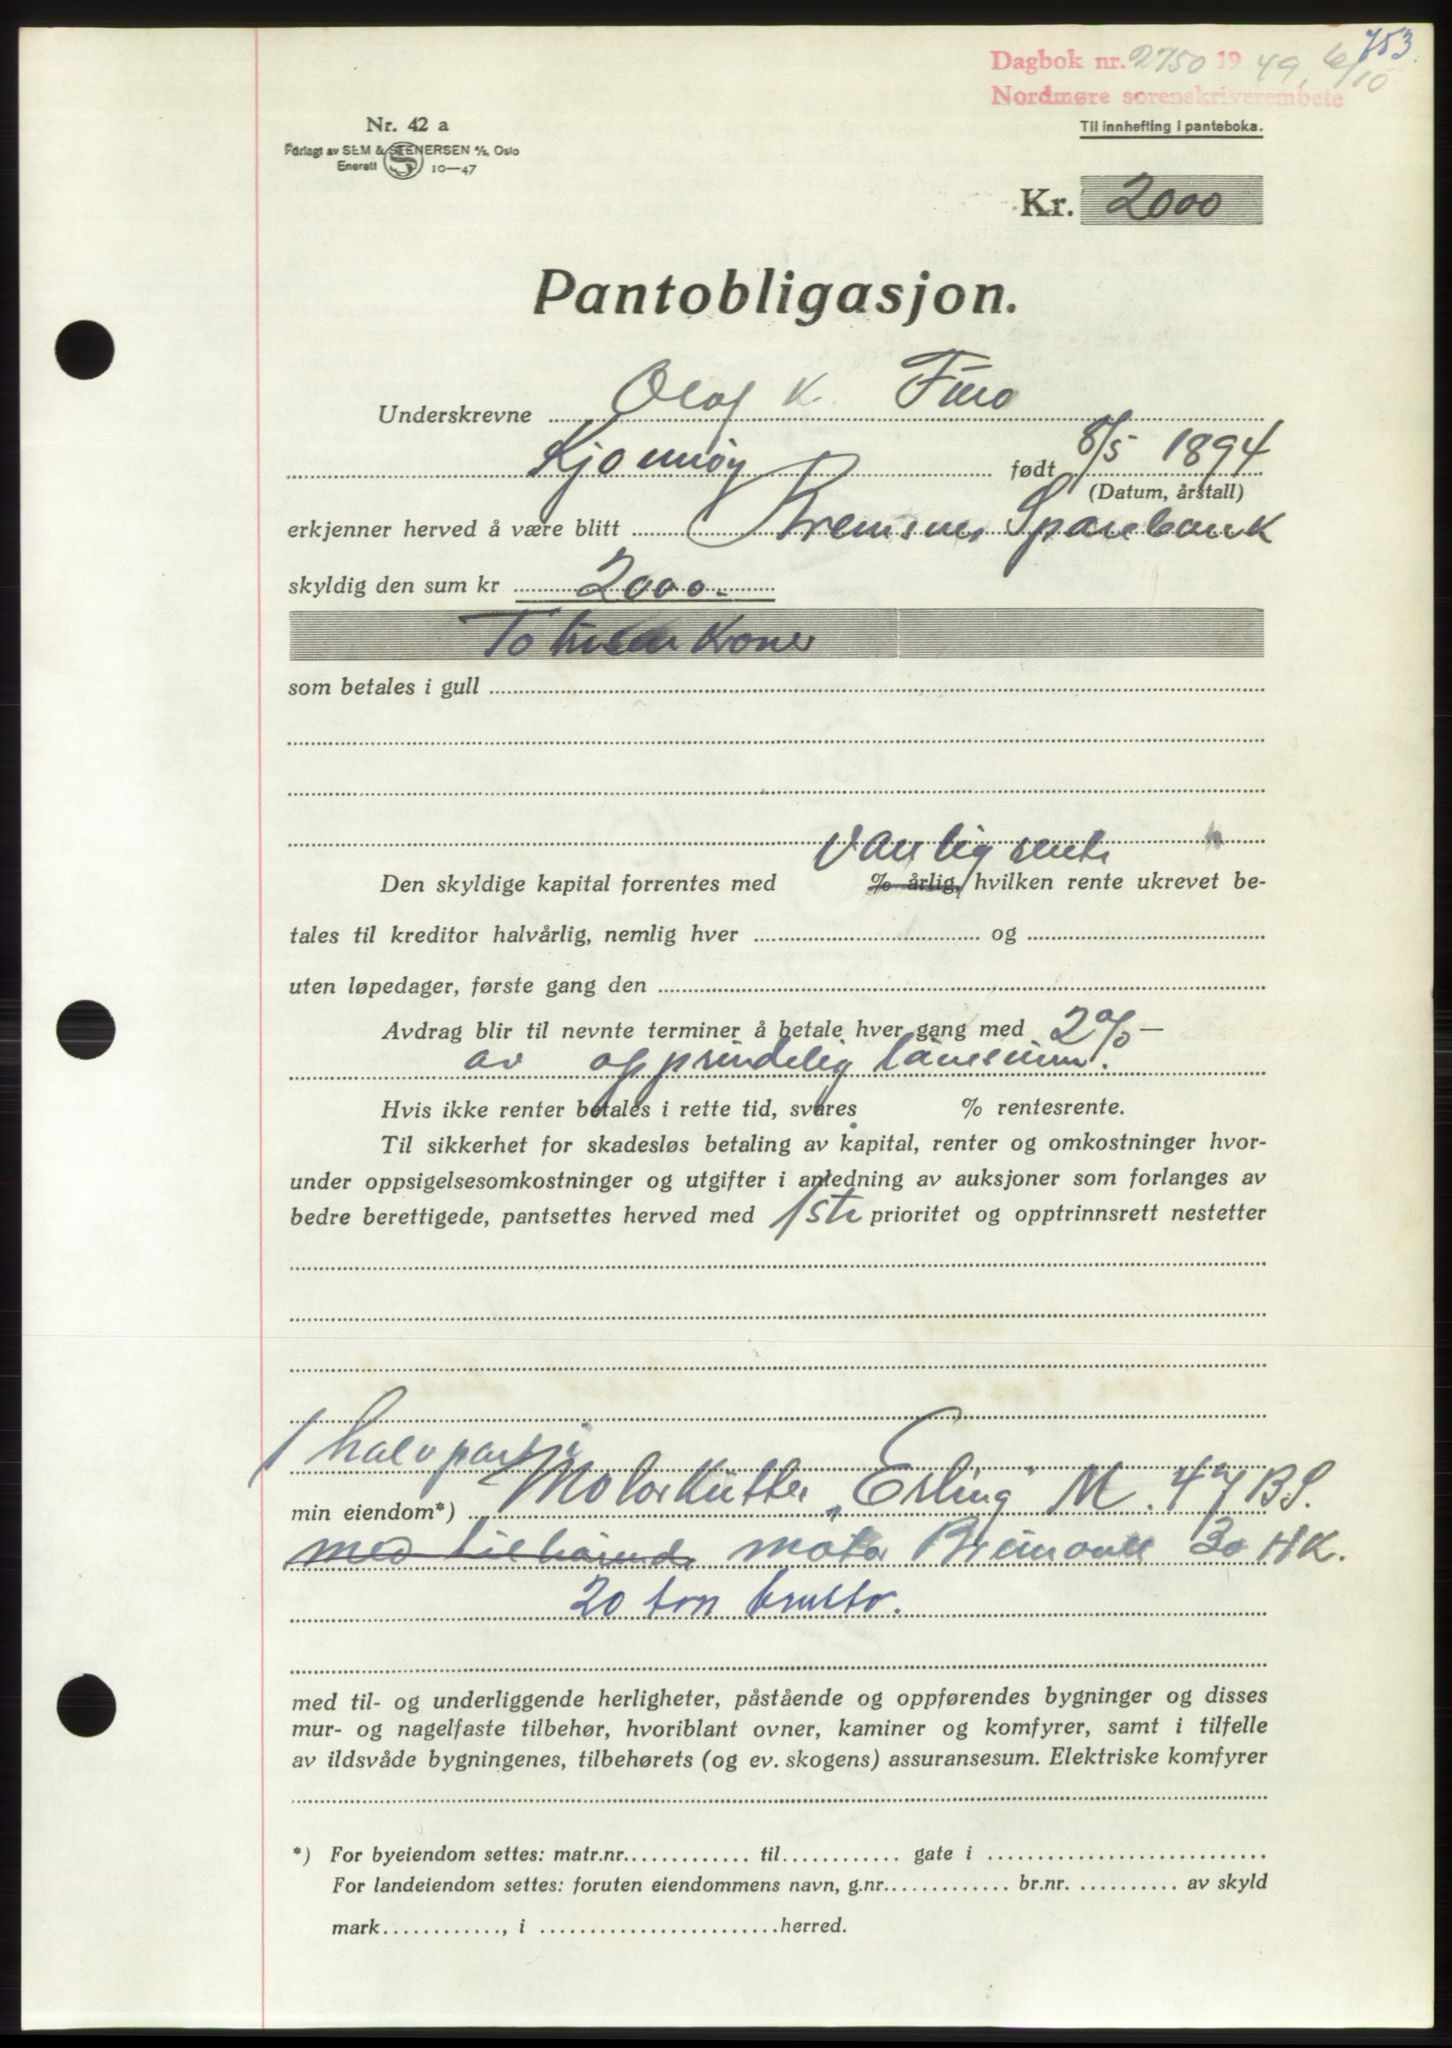 753.
Dagbok nr. 2750 1949, 6/10
Nordmøre sorenskriverembete
Nr. 42 a
Til innhefting i panteboka.
Forlagt av SEM & STENERSEN A/S, Oslo
Enerett 10—47
Kr. 2000
Pantobligasjon.
Underskrevne Olaf K. Furø
født 8/5 1894
(Datum, årstall)
erkjenner herved å være blitt Bremsnes Sparebank
skyldig den sum kr 2000.-
To tusen kroner
som betales i gull
Vanlig rente
Den skyldige kapital forrentes med % årlig, hvilken rente ukrevet be-
tales til kreditor halvårlig, nemlig hver og
uten løpedager, første gang den
Avdrag blir til nevnte terminer å betale hver gang med 2% —
av opprindelig lånesum.
Hvis ikke renter betales i rette tid, svares % rentesrente.
Til sikkerhet for skadesløs betaling av kapital, renter og omkostninger hvor-
under oppsigelsesomkostninger og utgifter i anledning av auksjoner som forlanges av
bedre berettigede, pantsettes herved med 1ste prioritet og opptrinnsrett nestetter
1 halvpart i
min eiendom*) Motorkutter „Erling" M. 47 BS.
med tilhørende motor Brunvoll 30 HK.
20 ton brutto.
med til- og underliggende herligheter, påstående og oppførendes bygninger og disses
mur- og nagelfaste tilbehør, hvoriblant ovner, kaminer og komfyrer, samt i tilfelle
av ildsvåde bygningenes, tilbehørets (og ev. skogens) assuransesum. Elektriske komfyrer
*) For byeiendom settes: matr.nr. til gate i
For landeiendom settes: foruten eiendommens navn, g.nr. br.nr. av skyld
mark , i herred.